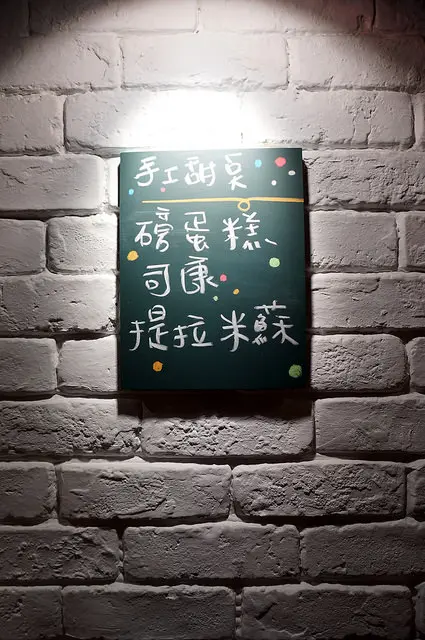 手工甜點
磅蛋糕
司康
提拉米蘇